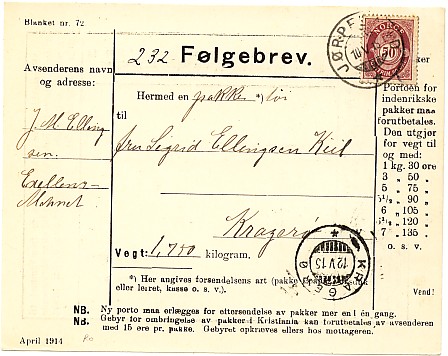 Blanket nr. 72
232 Følgebrev.
NORGE
50
JØRPELAND
10 V 15
Avsenderens navn
og adresse:
J. M. Elling
sen.
Hermed en pakke *)
til
fru Sigrid Ellingsen Keil
Kragerø
Vegt: 1,700 kilogram.
KRAGERØ
12 V 15
*) Her angives forsendelsens art (pakke,
eller leiret, kasse o. s. v.).
Portoen for
indenrikske
pakker maa
forutbetales.
Den utgjør
for vegt til
og med:
1 kg. 30 øre
3 „ 50 „
5 „ 75 „
5½ „ 90 „
6 „ 105 „
6½ „ 120 „
7 „ 135 „
o. s. v.
Vend!
NB. Ny porto maa erlægges for eftersendelse av pakker mer en 1 én gang.
NB. Gebyr for ombringelse av pakker i Kristiania kan forutbetales av avsenderen
med 15 øre pr. pakke. Gebyret opkræves ellers hos mottageren.
April 1914